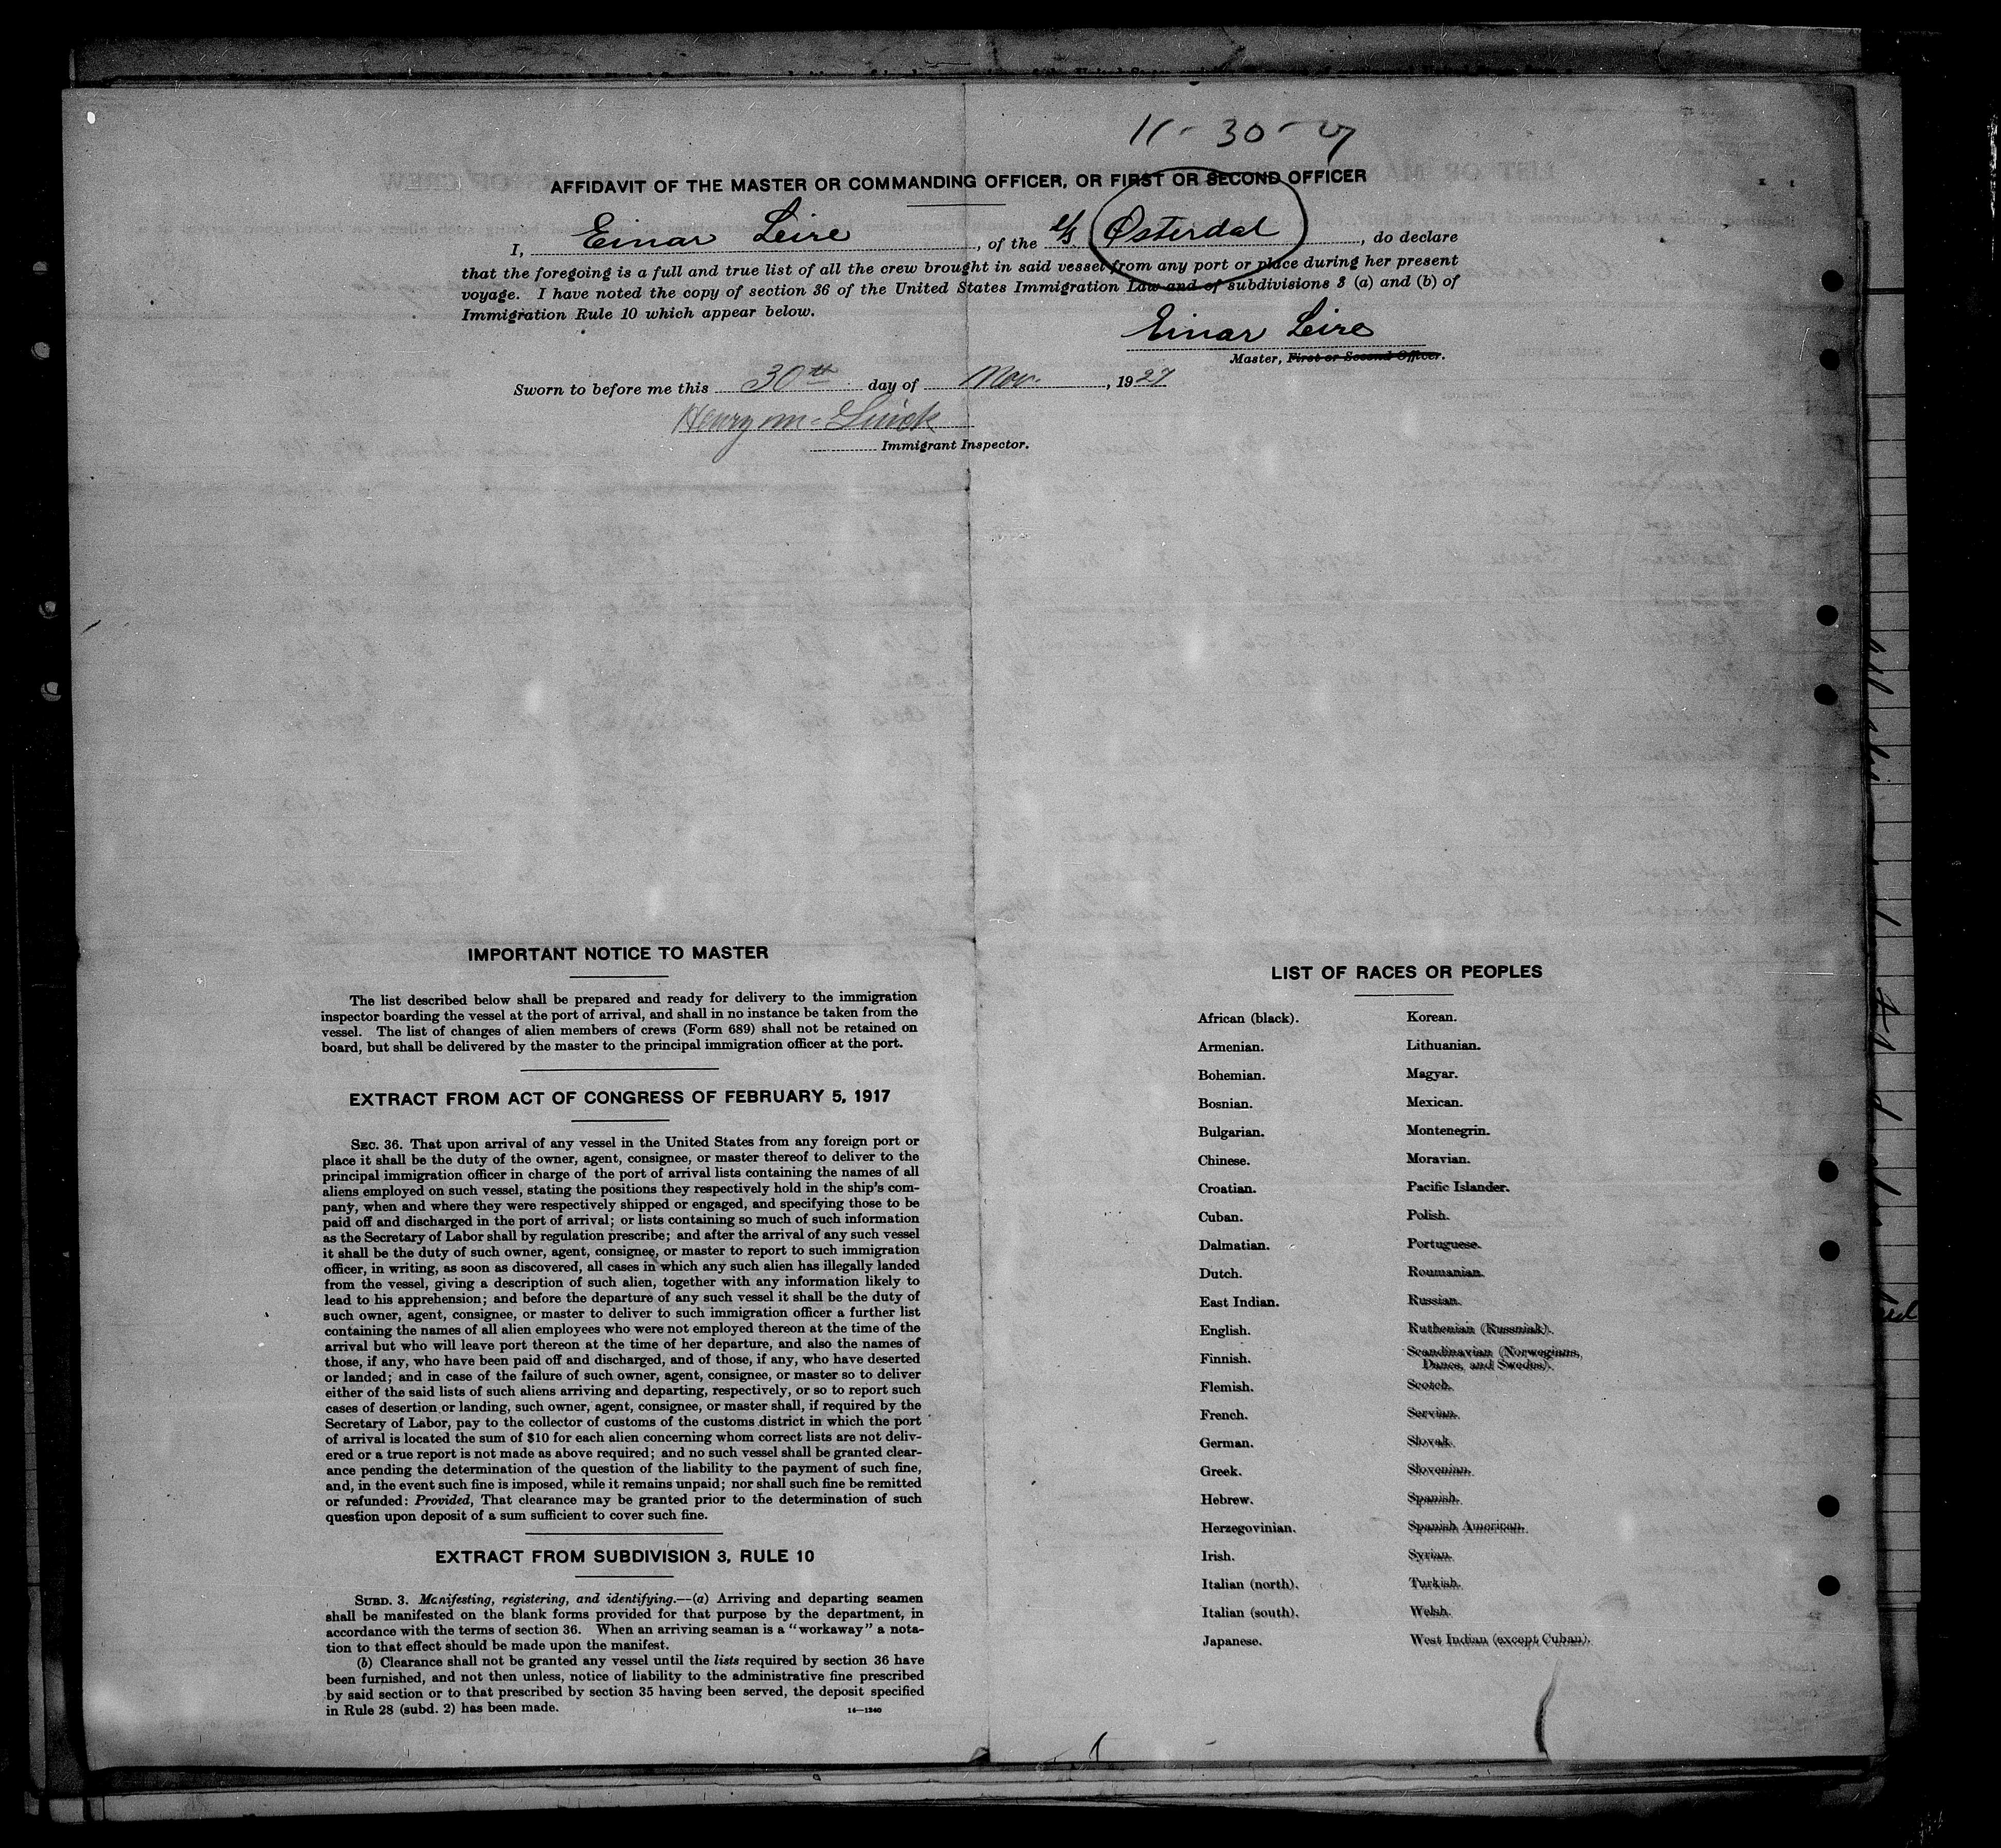 11-30-27
AFFIDAVIT OF THE MASTER OR COMMANDING OFFICER, OR FIRST OR SECOND OFFICER
I, Einar Leire, of the S/S Østerdal, do declare
that the foregoing is a full and true list of all the crew brought in said vessel from any port or place during her present
voyage. I have noted the copy of section 36 of the United States Immigration Law and of subdivisions 3 (a) and (b) of
Immigration Rule 10 which appear below.
Einar Leire
Master, First or Second Officer.
Sworn to before me this 30th day of Nov., 1927
Henry
Immigrant Inspector.
IMPORTANT NOTICE TO MASTER
The list described below shall be prepared and ready for delivery to the immigration
inspector boarding the vessel at the port of arrival, and shall in no instance be taken from the
vessel. The list of changes of alien members of crews (Form 689) shall not be retained on
board, but shall be delivered by the master to the principal immigration officer at the port.
EXTRACT FROM ACT OF CONGRESS OF FEBRUARY 5, 1917
SEC. 36. That upon arrival of any vessel in the United States from any foreign port or
place it shall be the duty of the owner, agent, consignee, or master thereof to deliver to the
principal immigration officer in charge of the port of arrival lists containing the names of all
aliens employed on such vessel, stating the positions they respectively hold in the ship's com-
pany, when and where they were respectively shipped or engaged, and specifying those to be
paid off and discharged in the port of arrival; or lists containing so much of such information
as the Secretary of Labor shall by regulation prescribe; and after the arrival of any such vessel
it shall be the duty of such owner, agent, consignee, or master to report to such immigration
officer, in writing, as soon as discovered, all cases in which any such alien has illegally landed
from the vessel, giving a description of such alien, together with any information likely to
lead to his apprehension; and before the departure of any such vessel it shall be the duty of
such owner, agent, consignee, or master to deliver to such immigration officer a further list
containing the names of all alien employees who were not employed thereon at the time of the
arrival but who will leave port thereon at the time of her departure, and also the names of
those, if any, who have been paid off and discharged, and of those, if any, who have deserted
or landed; and in case of the failure of such owner, agent, consignee, or master so to deliver
either of the said lists of such aliens arriving and departing, respectively, or so to report such
cases of desertion or landing, such owner, agent, consignee, or master shall, if required by the
Secretary of Labor, pay to the collector of customs of the customs district in which the port
of arrival is located the sum of $10 for each alien concerning whom correct lists are not deliv-
ered or a true report is not made as above required; and no such vessel shall be granted clear-
ance pending the determination of the question of the liability to the payment of such fine,
and, in the event such fine is imposed, while it remains unpaid; nor shall such fine be remitted
or refunded: Provided, That clearance may be granted prior to the determination of such
question upon deposit of a sum sufficient to cover such fine.
EXTRACT FROM SUBDIVISION 3, RULE 10
SUBD. 3. Manifesting, registering, and identifying.—(a) Arriving and departing seamen
shall be manifested on the blank forms provided for that purpose by the department, in
accordance with the terms of section 36. When an arriving seaman is a "workaway" a nota-
tion to that effect should be made upon the manifest.
(b) Clearance shall not be granted any vessel until the lists required by section 36 have
been furnished, and not then unless, notice of liability to the administrative fine prescribed
by said section or to that prescribed by section 35 having been served, the deposit specified
in Rule 28 (subd. 2) has been made.
14—1240
LIST OF RACES OR PEOPLES
African (black).
Armenian.
Bohemian.
Bosnian.
Bulgarian.
Chinese.
Croatian.
Cuban.
Dalmatian.
Dutch.
East Indian.
English.
Finnish.
Flemish.
French.
German.
Greek.
Hebrew.
Herzegovinian.
Irish.
Italian (north).
Italian (south).
Japanese.
Korean.
Lithuanian.
Magyar.
Mexican.
Montenegrin.
Moravian.
Pacific Islander.
Polish.
Portuguese.
Roumanian.
Russian.
Ruthenian (Russniak).
Scandinavian (Norwegians,
Danes, and Swedes).
Scotch.
Servian.
Slovak.
Slovenian.
Spanish.
Spanish American.
Syrian.
Turkish.
Welsh.
West Indian (except Cuban).